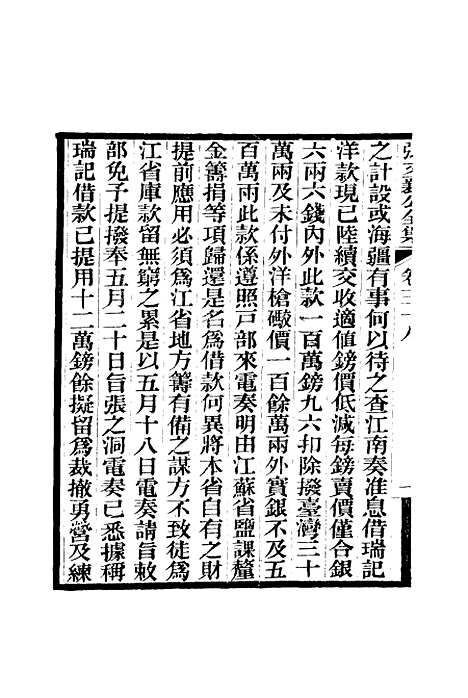 張文襄公全集 卷三十八
之計設或海疆有事何以待之查江南奏准息借瑞記
洋款現已陸續交收適值鎊價低減每鎊賣價僅合銀
六兩六錢內外此款一百萬鎊九六扣除撥臺灣三十
萬兩及未付外洋槍礮價一百餘萬兩外實銀不及五
百萬兩此款係遵照戸部來電奏明由江蘇省鹽課釐
金籌捐等項歸還是名爲借款何異將本省自有之財
提前應用必須爲江省地方籌有備之謀方不致徒爲
江省庫款留無窮之累是以五月十八日電奏請旨敕
部免予提撥奉五月二十日旨張之洞電奏已悉據稱
瑞記借款已提用十二萬鎊餘擬留爲裁撤勇營及練